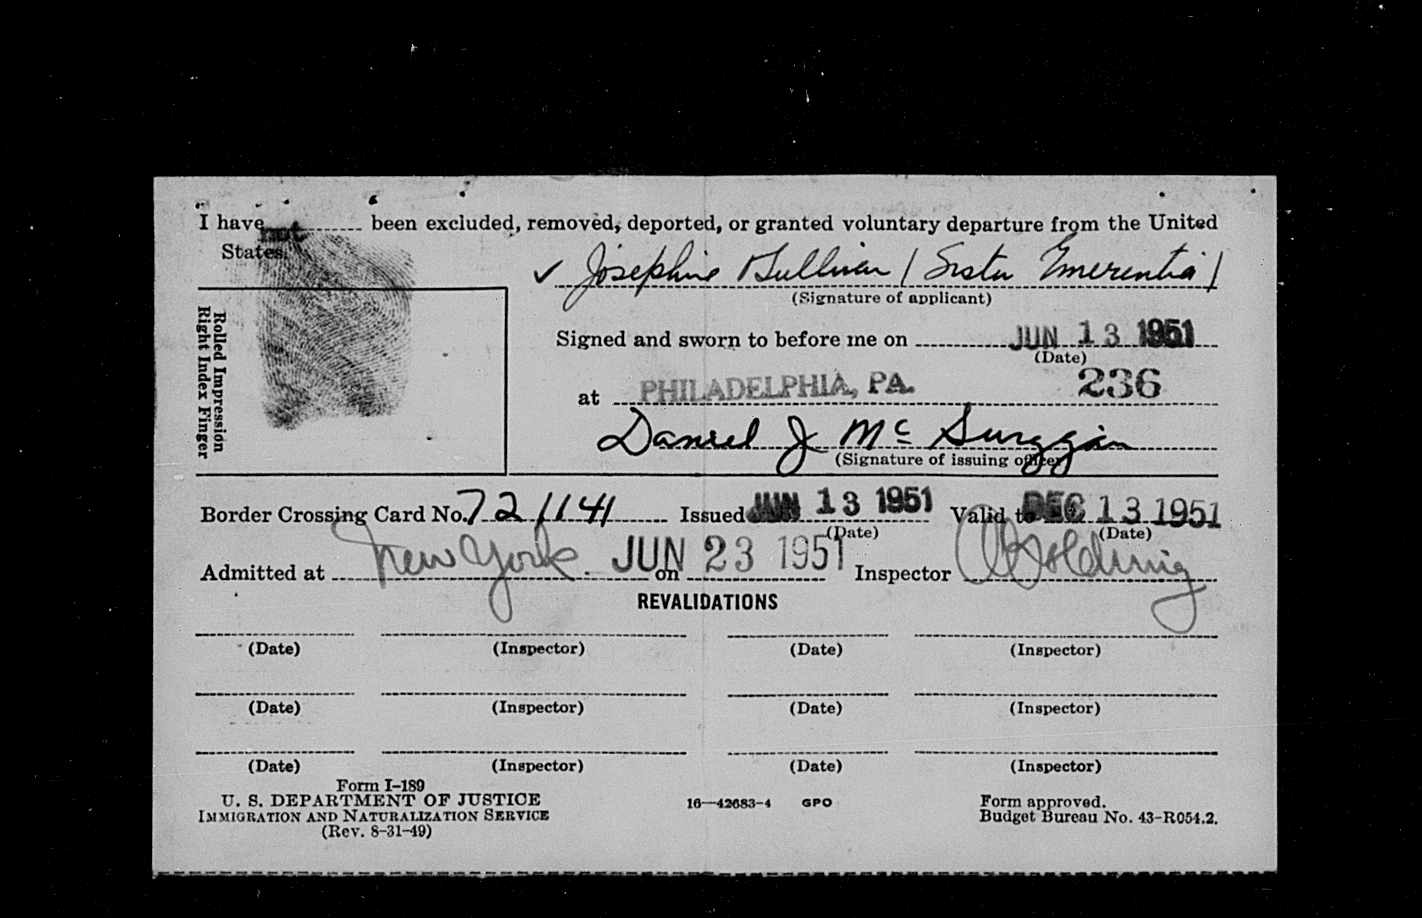 I have not been excluded, removed, deported, or granted voluntary departure from the United
States.
✓ Josephine Sullivan (Sister Emerentia)
(Signature of applicant)
Rolled Impression
Right Index Finger
Signed and sworn to before me on JUN 13 1951
(Date)
at PHILADELPHIA, PA. 236
Daniel J Mc
(Signature of issuing officer)
Border Crossing Card No. 721141 Issued JUN 13 1951 Valid to DEC 13 1951
(Date) (Date)
Admitted at New York. on JUN 23 1951 Inspector
REVALIDATIONS
(Date) (Inspector) (Date) (Inspector)
(Date) (Inspector) (Date) (Inspector)
(Date) (Inspector) (Date) (Inspector)
Form I-189
U. S. DEPARTMENT OF JUSTICE
IMMIGRATION AND NATURALIZATION SERVICE
(Rev. 8-31-49)
16—42683-4 GPO
Form approved.
Budget Bureau No. 43-R054.2.